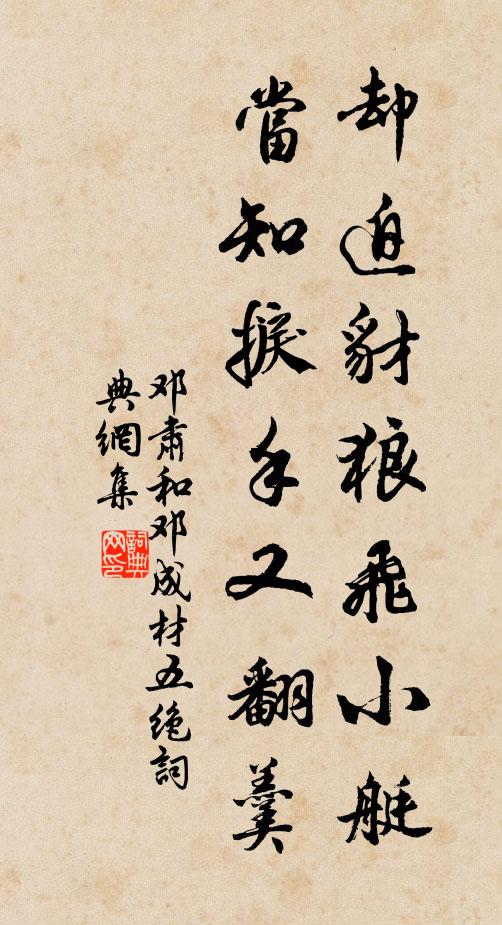 却迫豺狼飛小艇
當知捩手又翻羹
邓肅和邓成材五绝詞
典網集
詞典
网印